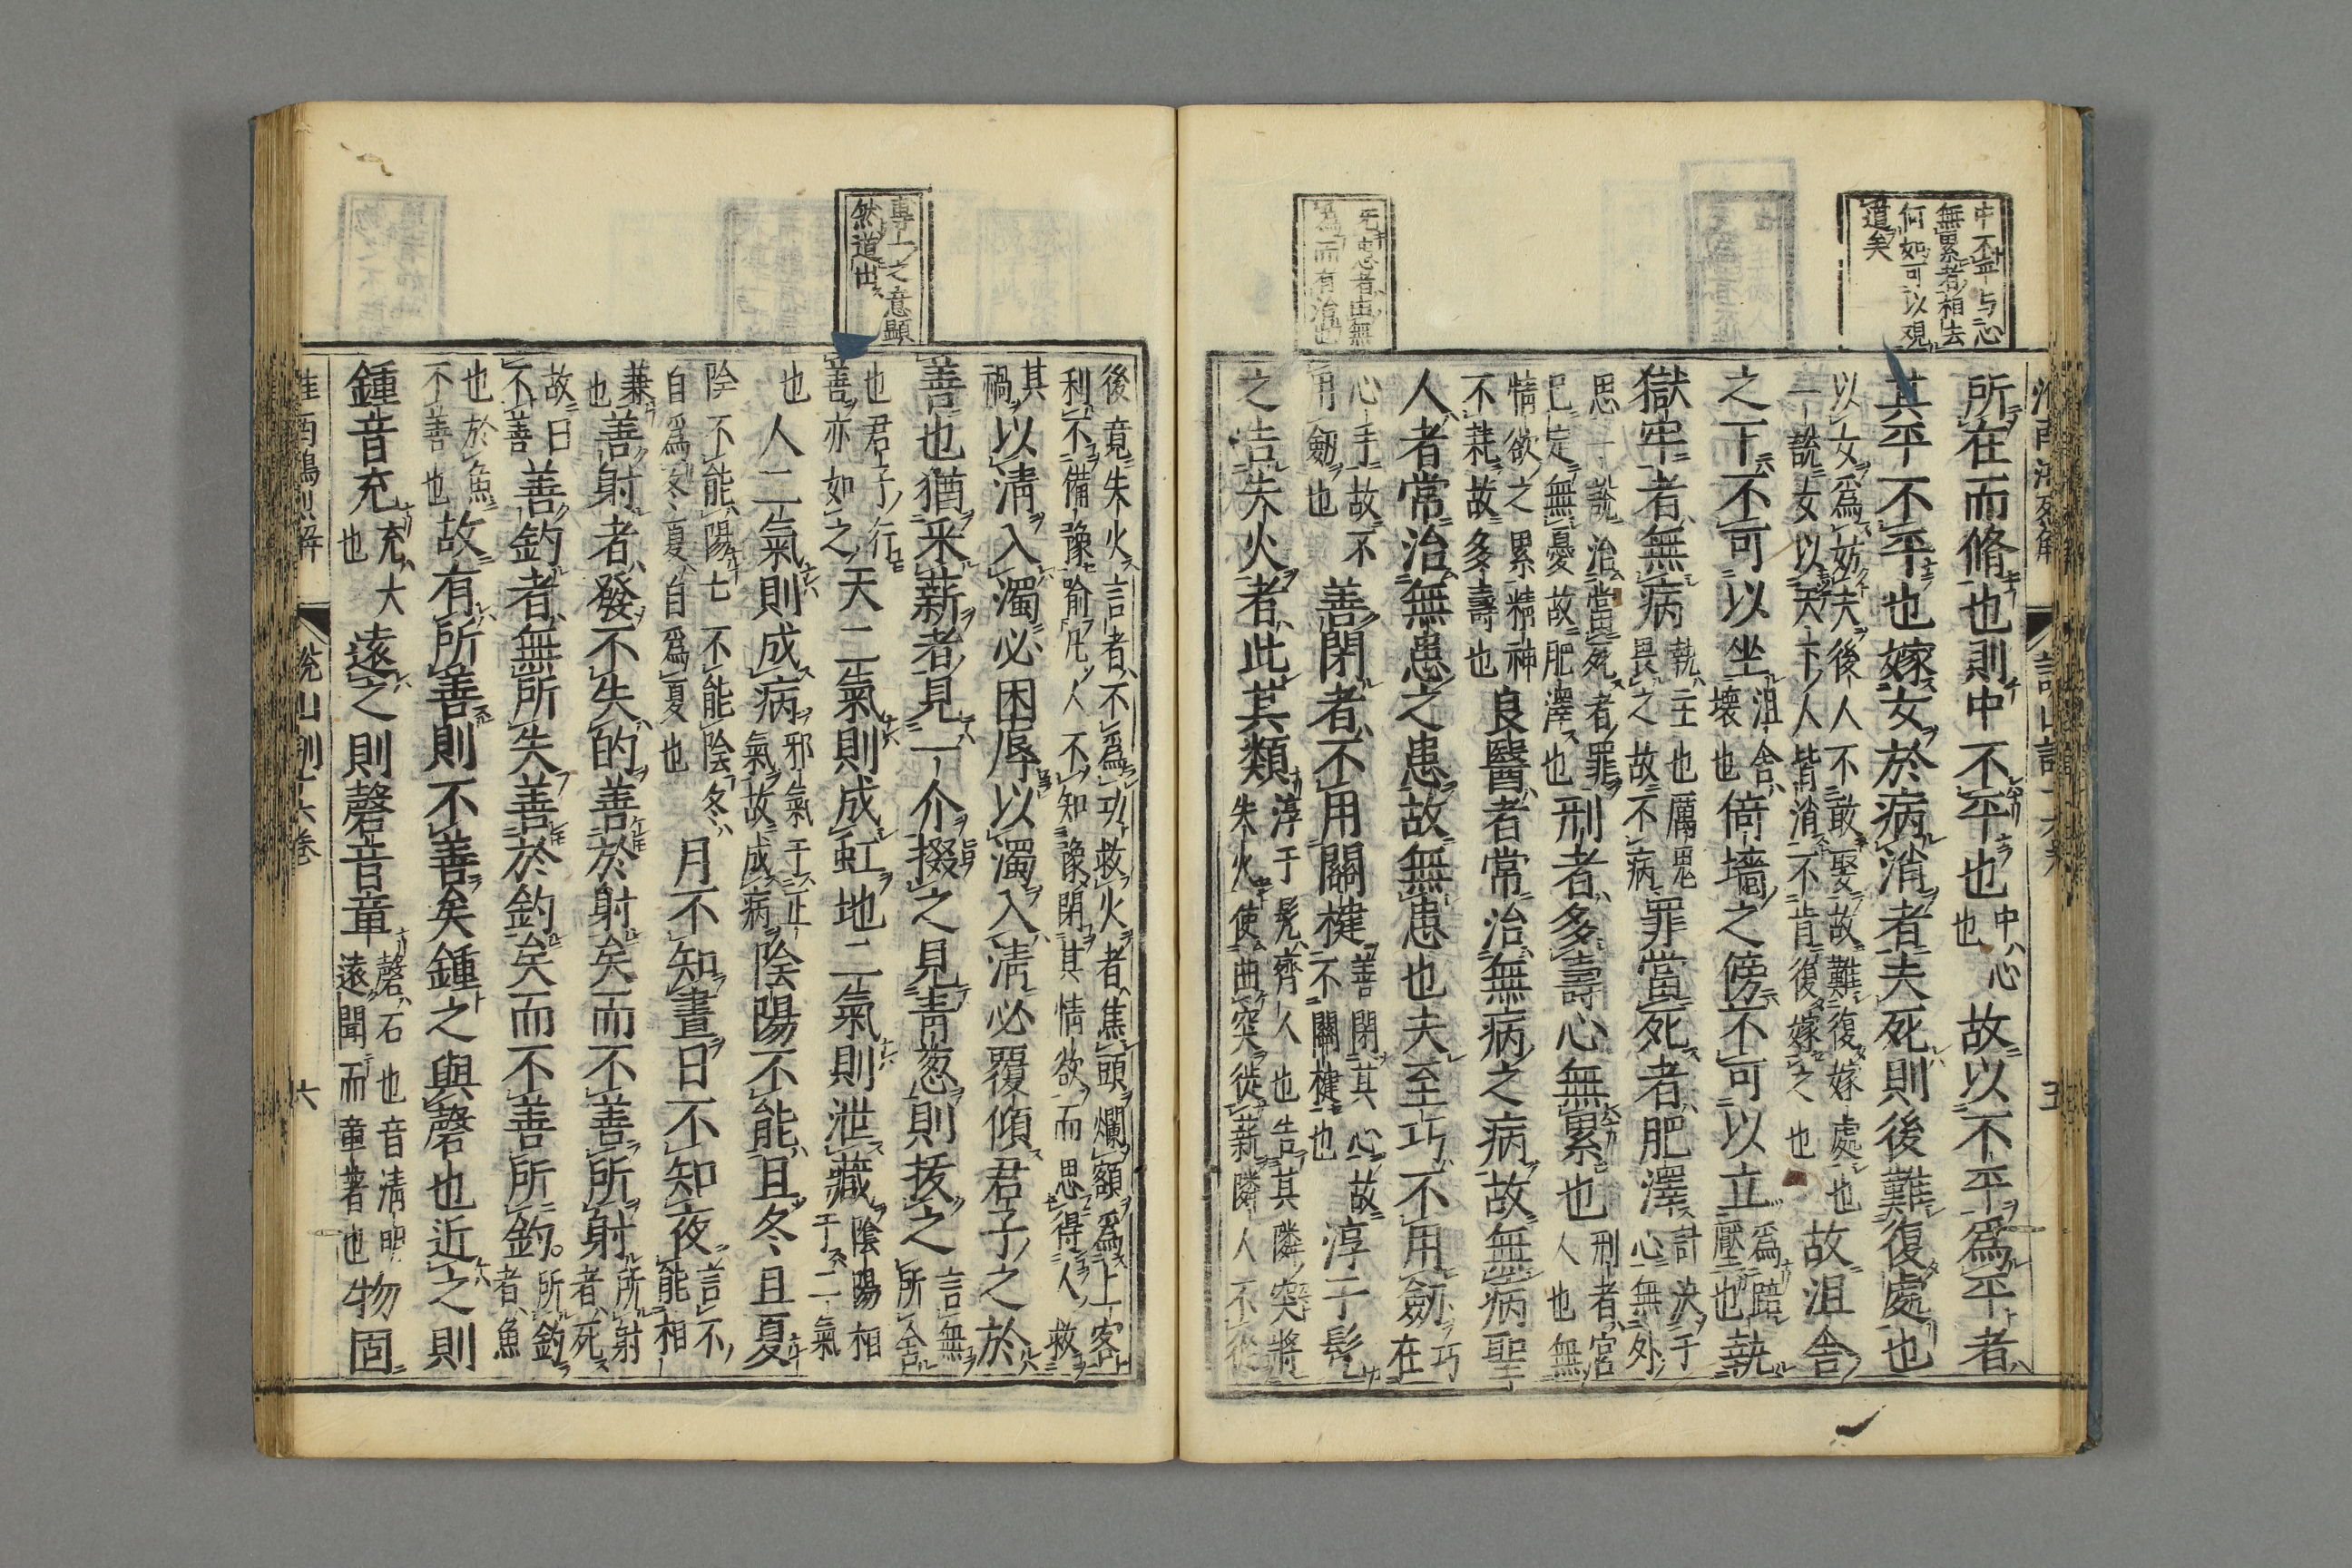 中不平与心
無累者相去
何如可以観
道矣
所在而脩也則中不平也中心也故以不平爲平者
其平不平也嫁女於病消者夫死則後難復處也
以女爲妨夫後人不敢娶故難復嫁處也
一說女以天下人皆消不肯復嫁之也故沮舍
之下不可以坐沮舍壞也倚墻之傍不可以立爲踣壓也執
獄牢者無病執主也厲鬼畏之故不病罪當死者肥澤計決于心無外
思一說治當死者罪已定無憂故肥澤也刑者多壽心無累也刑者宮人也無
情欲之累精神不耗故多壽也良醫者常治無病之病故無病聖
人者常治無患之患故無患也夫至巧不用劔巧在
心手故不用劔也善閉者不用關楗善閉其心故不關楗也淳于髡
之告失火者此其類淳于髡齊人也告其隣突將失火使曲突徙薪隣人不從
專一之意顯
然道出
後竟失火言者不爲功救火者焦頭爛額爲上客
利不備豫喻凡人不知豫閉其情欲而思得人救
其禍以淸入濁必困辱以濁入淸必覆傾君子之於
善也猶采薪者見一介掇之見靑葱則拔之言無所舍
也君子行善亦如之天二氣則成虹地二氣則泄藏陰陽相干二氣
也人二氣則成病邪氣干正氣故成病陰陽不能且冬且夏
陰不能陽七不能陰冬自爲冬夏自爲夏也月不知晝日不知夜言不能相
兼也善射者發不失的善於射矣而不善所射所射者死
故曰不善善釣者無所失善於釣矣而不善所釣所釣者魚
也於魚不善也故有所善則不善矣鍾之與磬也近之則
鍾音充充大也遠之則磬音章磬石也音淸明遠聞而章著也物固
六